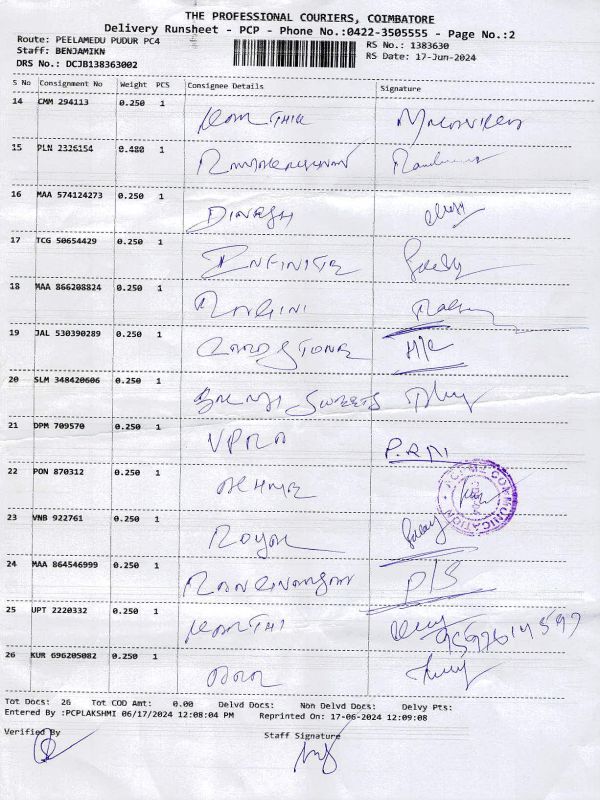 THE PROFESSIONAL COURIERS, COIMBATORE
Delivery Runsheet - PCP - Phone No.:0422-3505555 - Page No.:2
Route: PEELAMEDU PUDUR PC4
RS No.: 1383630
Staff: BENJAMIKN
RS Date: 17-Jun-2024
DRS No.: DCJB138363002
S No Consignment No Weight PCS Consignee Details Signature
14 CMM 294113 0.250 1 KARTHIK
15 PLN 2326154 0.480 1 RAMAKRISHNAN
16 MAA 574124273 0.250 1 DINESH
17 TCG 50654429 0.250 1 INFINITE
18 MAA 866208824 0.250 1 RAGINI
19 JAL 530390289 0.250 1 H/R
20 SLM 348420606 0.250 1 SWEETS
21 DPM 709570 0.250 1 P.R
22 PON 870312 0.250 1
COMMUNICATION
23 VNB 922761 0.250 1 ROYAL
24 MAA 864546999 0.250 1 P/S
25 UPT 2220332 0.250 1 KARTHI
26 KUR 696205082 0.250 1
Tot Docs: 26 Tot COD Amt: 0.00 Delvd Docs: Non Delvd Docs: Delvy Pts:
Entered By :PCPLAKSHMI 06/17/2024 12:08:04 PM Reprinted On: 17-06-2024 12:09:08
Verified By Staff Signature